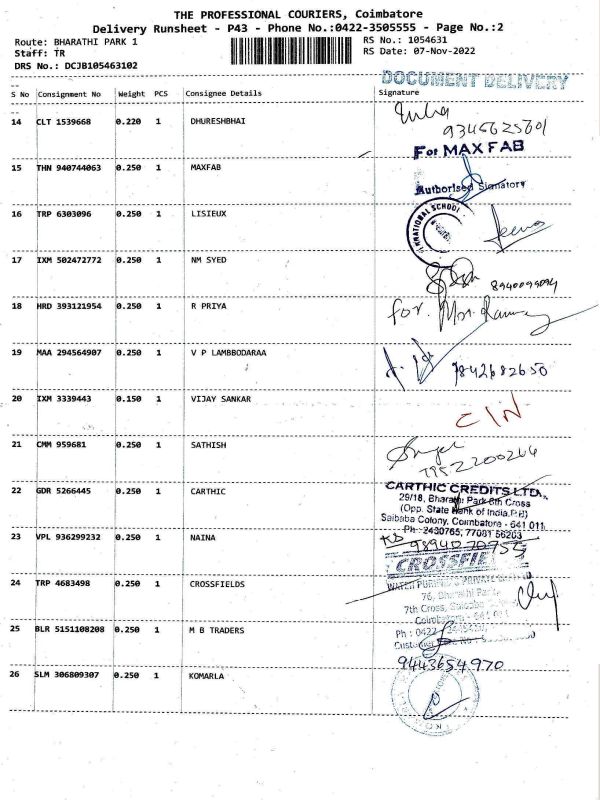 THE PROFESSIONAL COURIERS, Coimbatore
Delivery Runsheet - P43 - Phone No.:0422-3505555 - Page No.:2
Route: BHARATHI PARK 1
RS No.: 1054631
Staff: TR
RS Date: 07-Nov-2022
DRS No.: DCJB105463102
DOCUMENT DELIVERY
S No Consignment No Weight PCS Consignee Details Signature
14 CLT 1539668 0.220 1 DHURESHBHAI
For MAX FAB
15 THN 940744063 0.250 1 MAXFAB
Authorised Signatory
16 TRP 6303096 0.250 1 LISIEUX
17 IXM 502472772 0.250 1 NM SYED
8940099094
18 HRD 393121954 0.250 1 R PRIYA
for.
19 MAA 294564907 0.250 1 V P LAMBBODARAA
7842682650
20 IXM 3339443 0.150 1 VIJAY SANKAR
CIN
21 CMM 959681 0.250 1 SATHISH
22 GDR 5266445 0.250 1 CARTHIC
CARTHIC CREDITS LTD.,
29/18, Bharathi Park 6th Cross
(Opp. State Bank of India.P.B)
Saibaba Colony, Coimbatore - 641 011
23 VPL 936299232 0.250 1 NAINA
24 TRP 4683498 0.250 1 CROSSFIELDS
76, Bharathi Park
7th Cross, Saibaba
25 BLR 5151108208 0.250 1 M B TRADERS
9443654970
26 SLM 306809307 0.250 1 KOMARLA